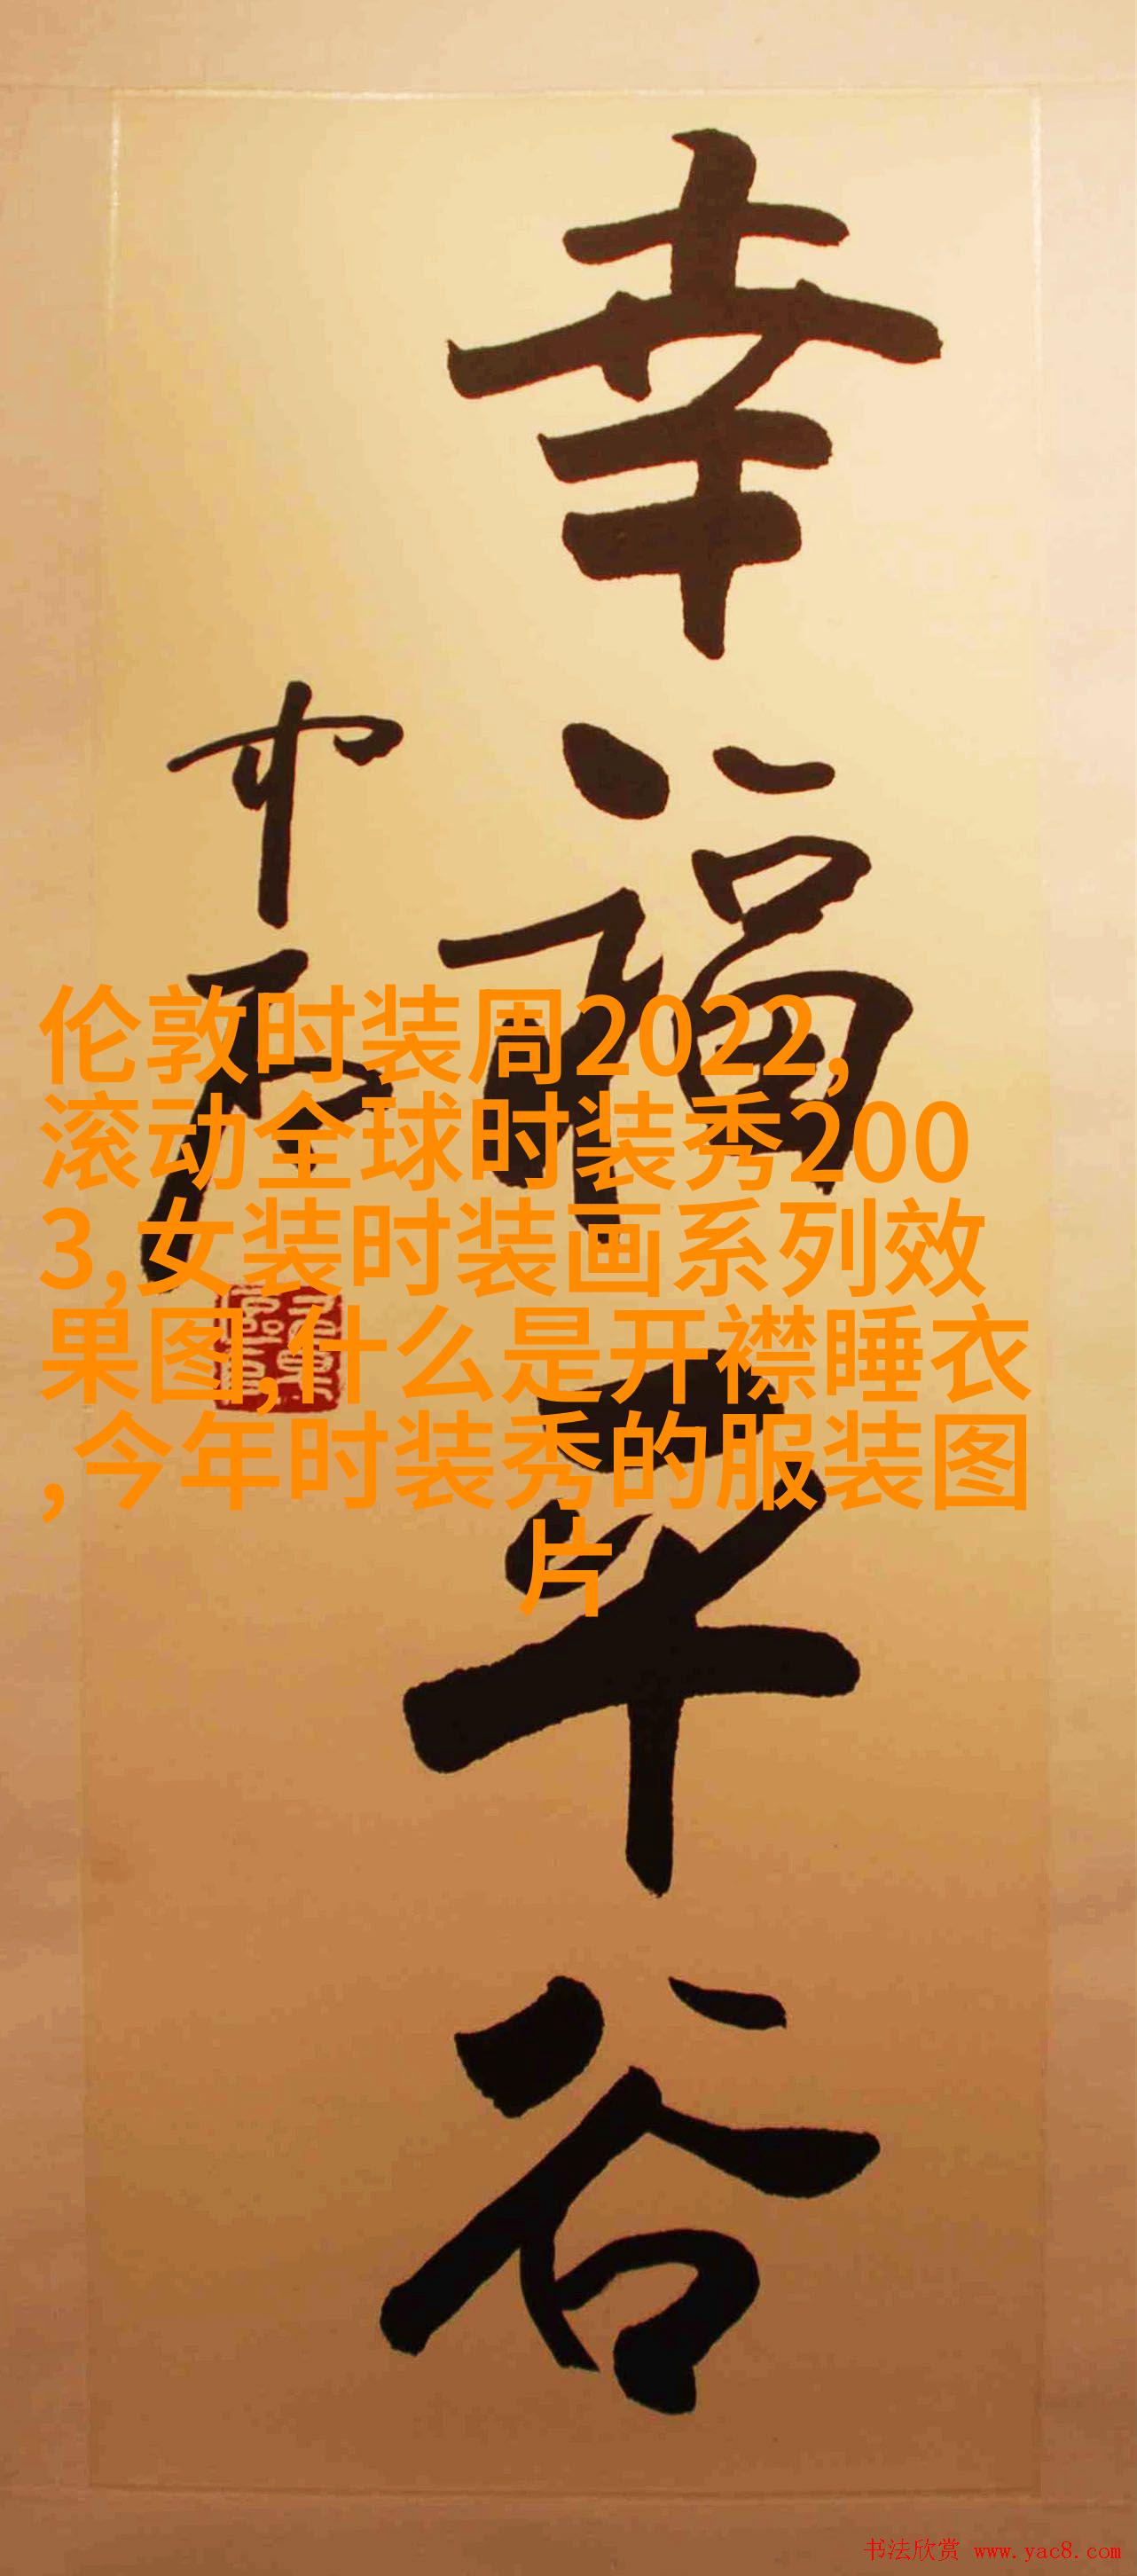 幸福平谷
伦敦时装周2022,
滚动全球时装秀200
3,女装时装画系列效
果图,什么是开襟睡衣
,今年时装秀的服装图
片
书法欣赏 www.yac8.com